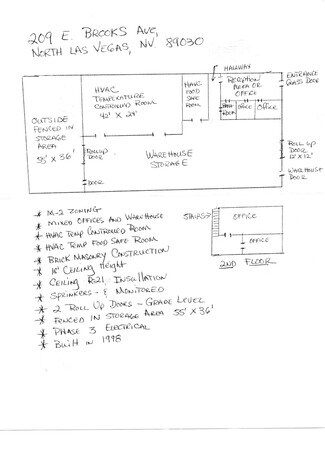 209 E. BROOKS AVE,
NORTH LAS VEGAS, NV. 89030
HALLWAY
HVAC
TEMPERATURE
CONTROLLED ROOM
42' X 24'
HVAC
FOOD
SAFE
ROOM
RECEPTION
AREA OR
OFFICE
ENTRANCE
GLASS DOOR
ROOM
OFFICE
OFFICE
OUTSIDE
FENCED IN
STORAGE
AREA
55' X 36'
ROLLUP
DOOR
WAREHOUSE
STORAGE
ROLL UP
DOOR
12' X 12'
WAREHOUSE
DOOR
DOOR
* M-2 ZONING
* MIXED OFFICES AND WAREHOUSE
* HVAC TEMP CONTROLLED ROOM
* HVAC TEMP FOOD SAFE ROOM
* BRICK MASONRY CONSTRUCTION
* 18' CEILING HEIGHT
* CEILING R-21 INSULLATION
* SPRINKERS - & MONITORED
* 2 ROLL UP DOORS - GRADE LEVEL
* FENCED IN STORAGE AREA 55' X 36'
* PHASE 3 ELECTRICAL
* BUILT IN 1998
STAIRS
OFFICE
OFFICE
2ND FLOOR